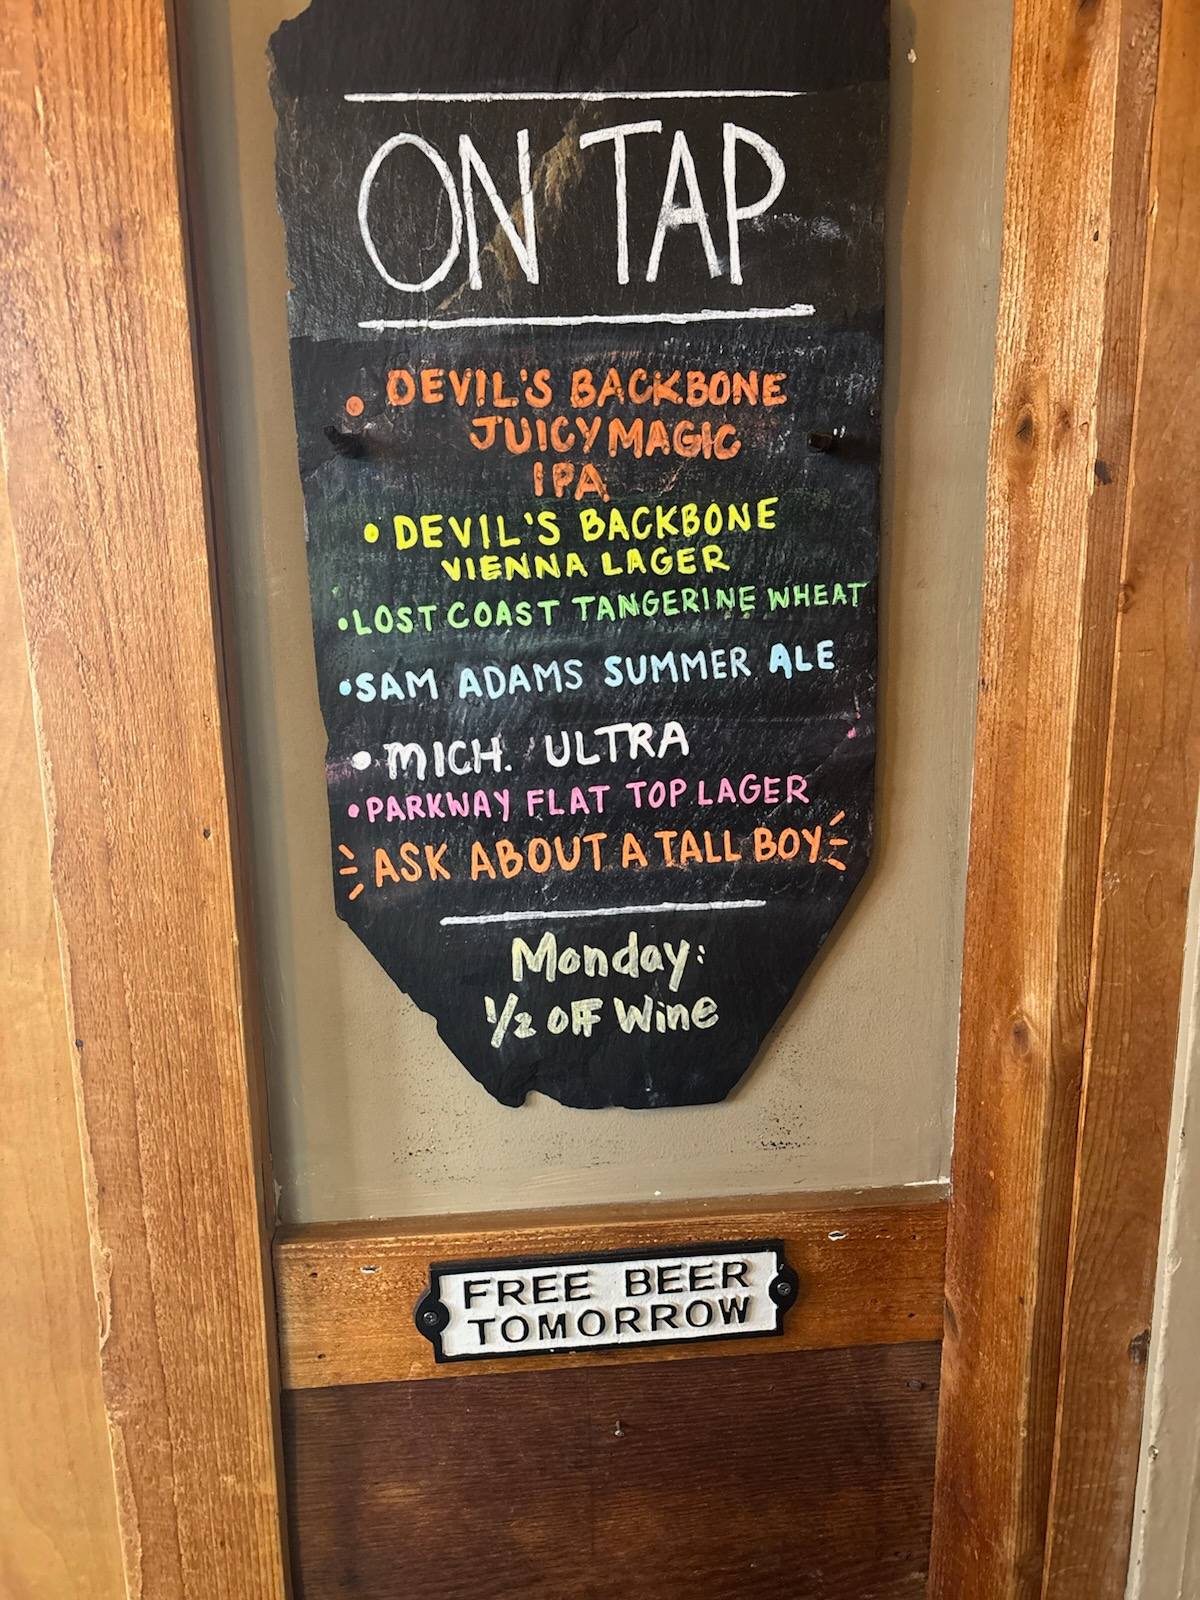 ON TAP
• DEVIL'S BACKBONE
JUICY MAGIC
IPA
• DEVIL'S BACKBONE
VIENNA LAGER
• LOST COAST TANGERINE WHEAT
• SAM ADAMS SUMMER ALE
• MICH. ULTRA
• PARKWAY FLAT TOP LAGER
ASK ABOUT A TALL BOY
Monday:
1/2 OFF Wine
FREE BEER
TOMORROW